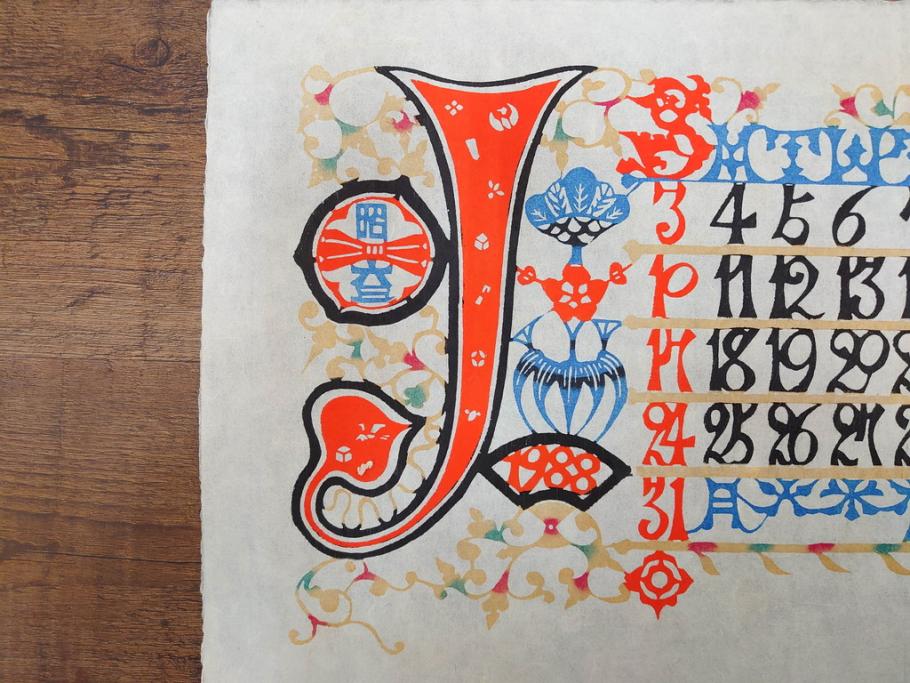 J
昭
1988
S M T W
3 4 5 6
10 11 12 13
17 18 19 20
24 25 26 27
31 月